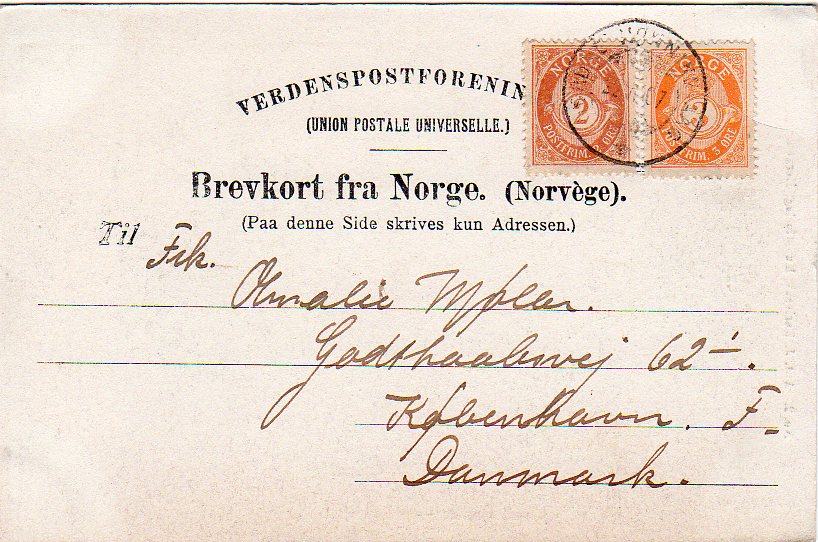 VERDENSPOSTFORENIN
(UNION POSTALE UNIVERSELLE.)
NORGE
2
POSTFRIM. ØRE
NORGE
3
POSTFRIM. 3 ØRE
Brevkort fra Norge. (Norvège).
(Paa denne Side skrives kun Adressen.)
Til Frk.
Amalie Møller.
Godthaabsvej 62 1.
København. F.
Danmark.